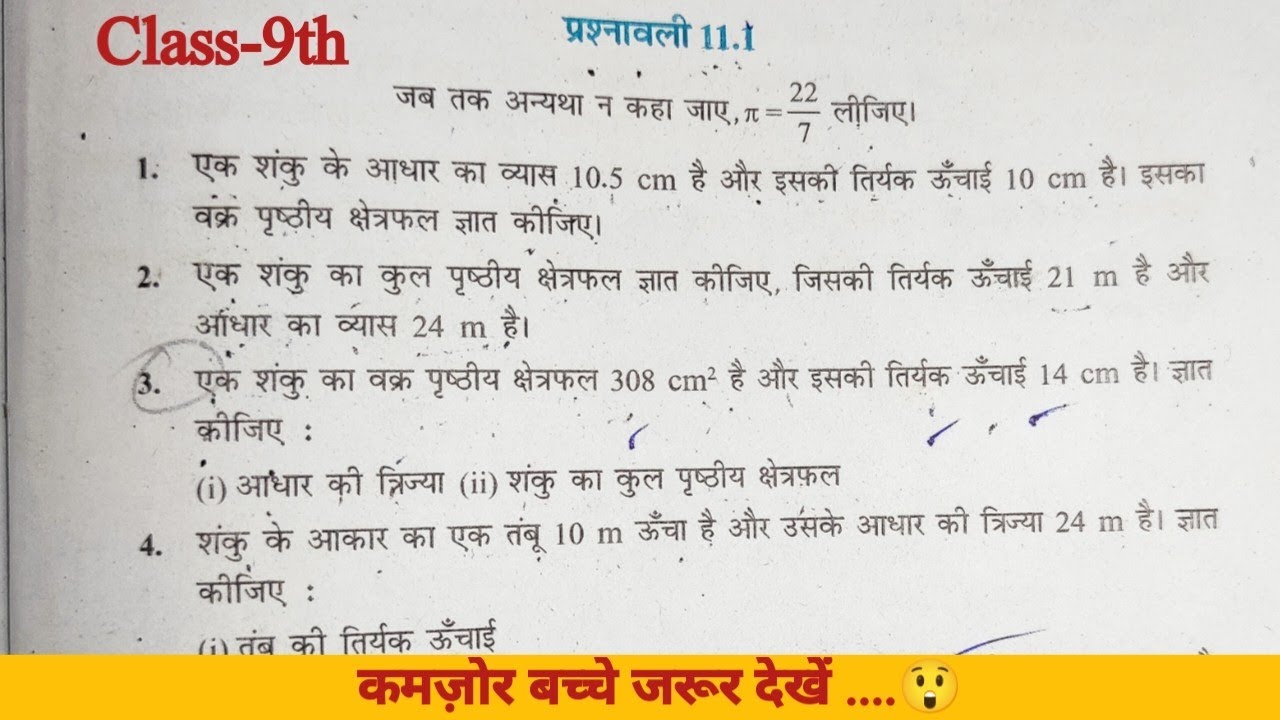 Class-9th
प्रश्नावली 11.1
जब तक अन्यथा न कहा जाए, π = 22/7 लीजिए।
1. एक शंकु के आधार का व्यास 10.5 cm है और इसकी तिर्यक ऊँचाई 10 cm है। इसका
वक्र पृष्ठीय क्षेत्रफल ज्ञात कीजिए।
2. एक शंकु का कुल पृष्ठीय क्षेत्रफल ज्ञात कीजिए, जिसकी तिर्यक ऊँचाई 21 m है और
आधार का व्यास 24 m है।
3. एक शंकु का वक्र पृष्ठीय क्षेत्रफल 308 cm² है और इसकी तिर्यक ऊँचाई 14 cm है। ज्ञात
कीजिए :
(i) आधार की त्रिज्या (ii) शंकु का कुल पृष्ठीय क्षेत्रफल
4. शंकु के आकार का एक तंबू 10 m ऊँचा है और उसके आधार की त्रिज्या 24 m है। ज्ञात
कीजिए :
(i) तंबू की तिर्यक ऊँचाई
कमज़ोर बच्चे जरूर देखें ....😲